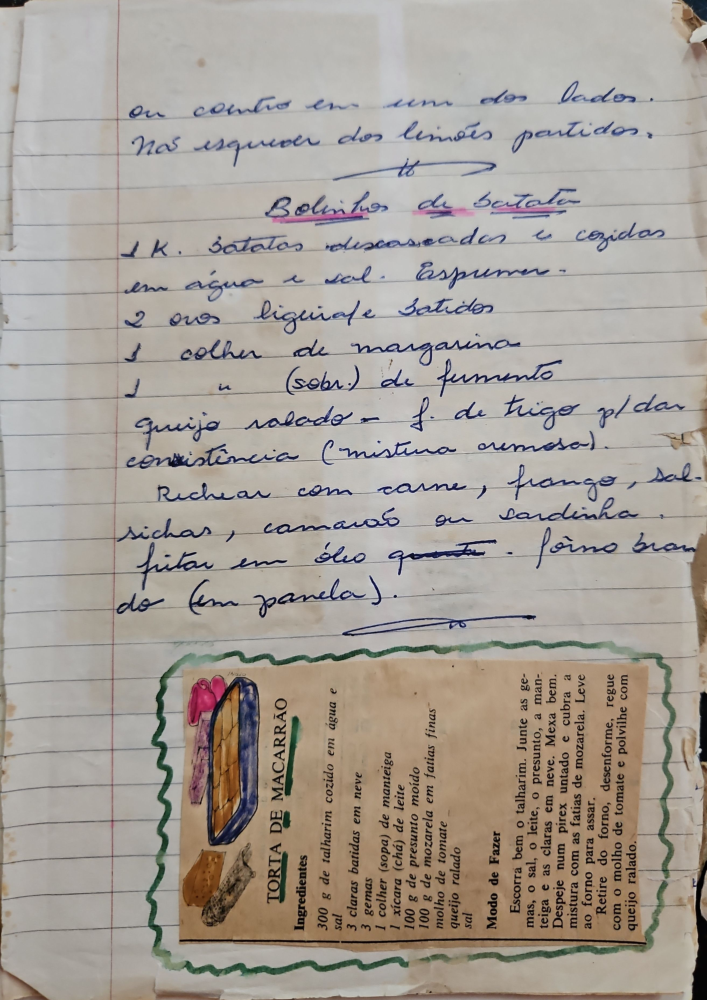 ou coentro em um dos lados.
Não esquecer dos limões partidos.
Bolinhos de batata
1 K. batatas descascadas e cozidas
em água e sal. Espremer.
2 ovos ligeira/e batidos
1 colher de margarina
1 " (sobr.) de fermento
queijo ralado - f. de trigo p/ dar
consistência (mistura cremosa).
Rechear com carne, frango, sal-
sichas, camarão ou sardinha.
fritar em óleo quente. fôrno bran
do (em panela).
TORTA DE MACARRÃO
Ingredientes
300 g de talharim cozido em água e
sal
3 claras batidas em neve
3 gemas
1 colher (sopa) de manteiga
1 xícara (chá) de leite
100 g de presunto moído
100 g de mozarela em fatias finas
molho de tomate
queijo ralado
sal
Modo de Fazer
Escorra bem o talharim. Junte as ge-
mas, o sal, o leite, o presunto, a man-
teiga e as claras em neve. Mexa bem.
Despeje num pirex untado e cubra a
mistura com as fatias de mozarela. Leve
ao forno para assar.
Retire do forno, desenforme, regue
com o molho de tomate e polvilhe com
queijo ralado.